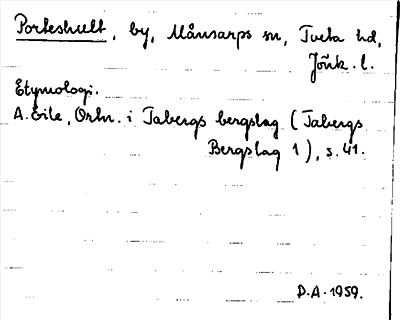 Porteshult, by, Månsarps sn, Tveta hd,
Jönk. l.
Etymologi.
A. Eile, Ortn. i Tabergs bergslag (Tabergs
Bergslag 1), s. 41.
D.A. 1959.